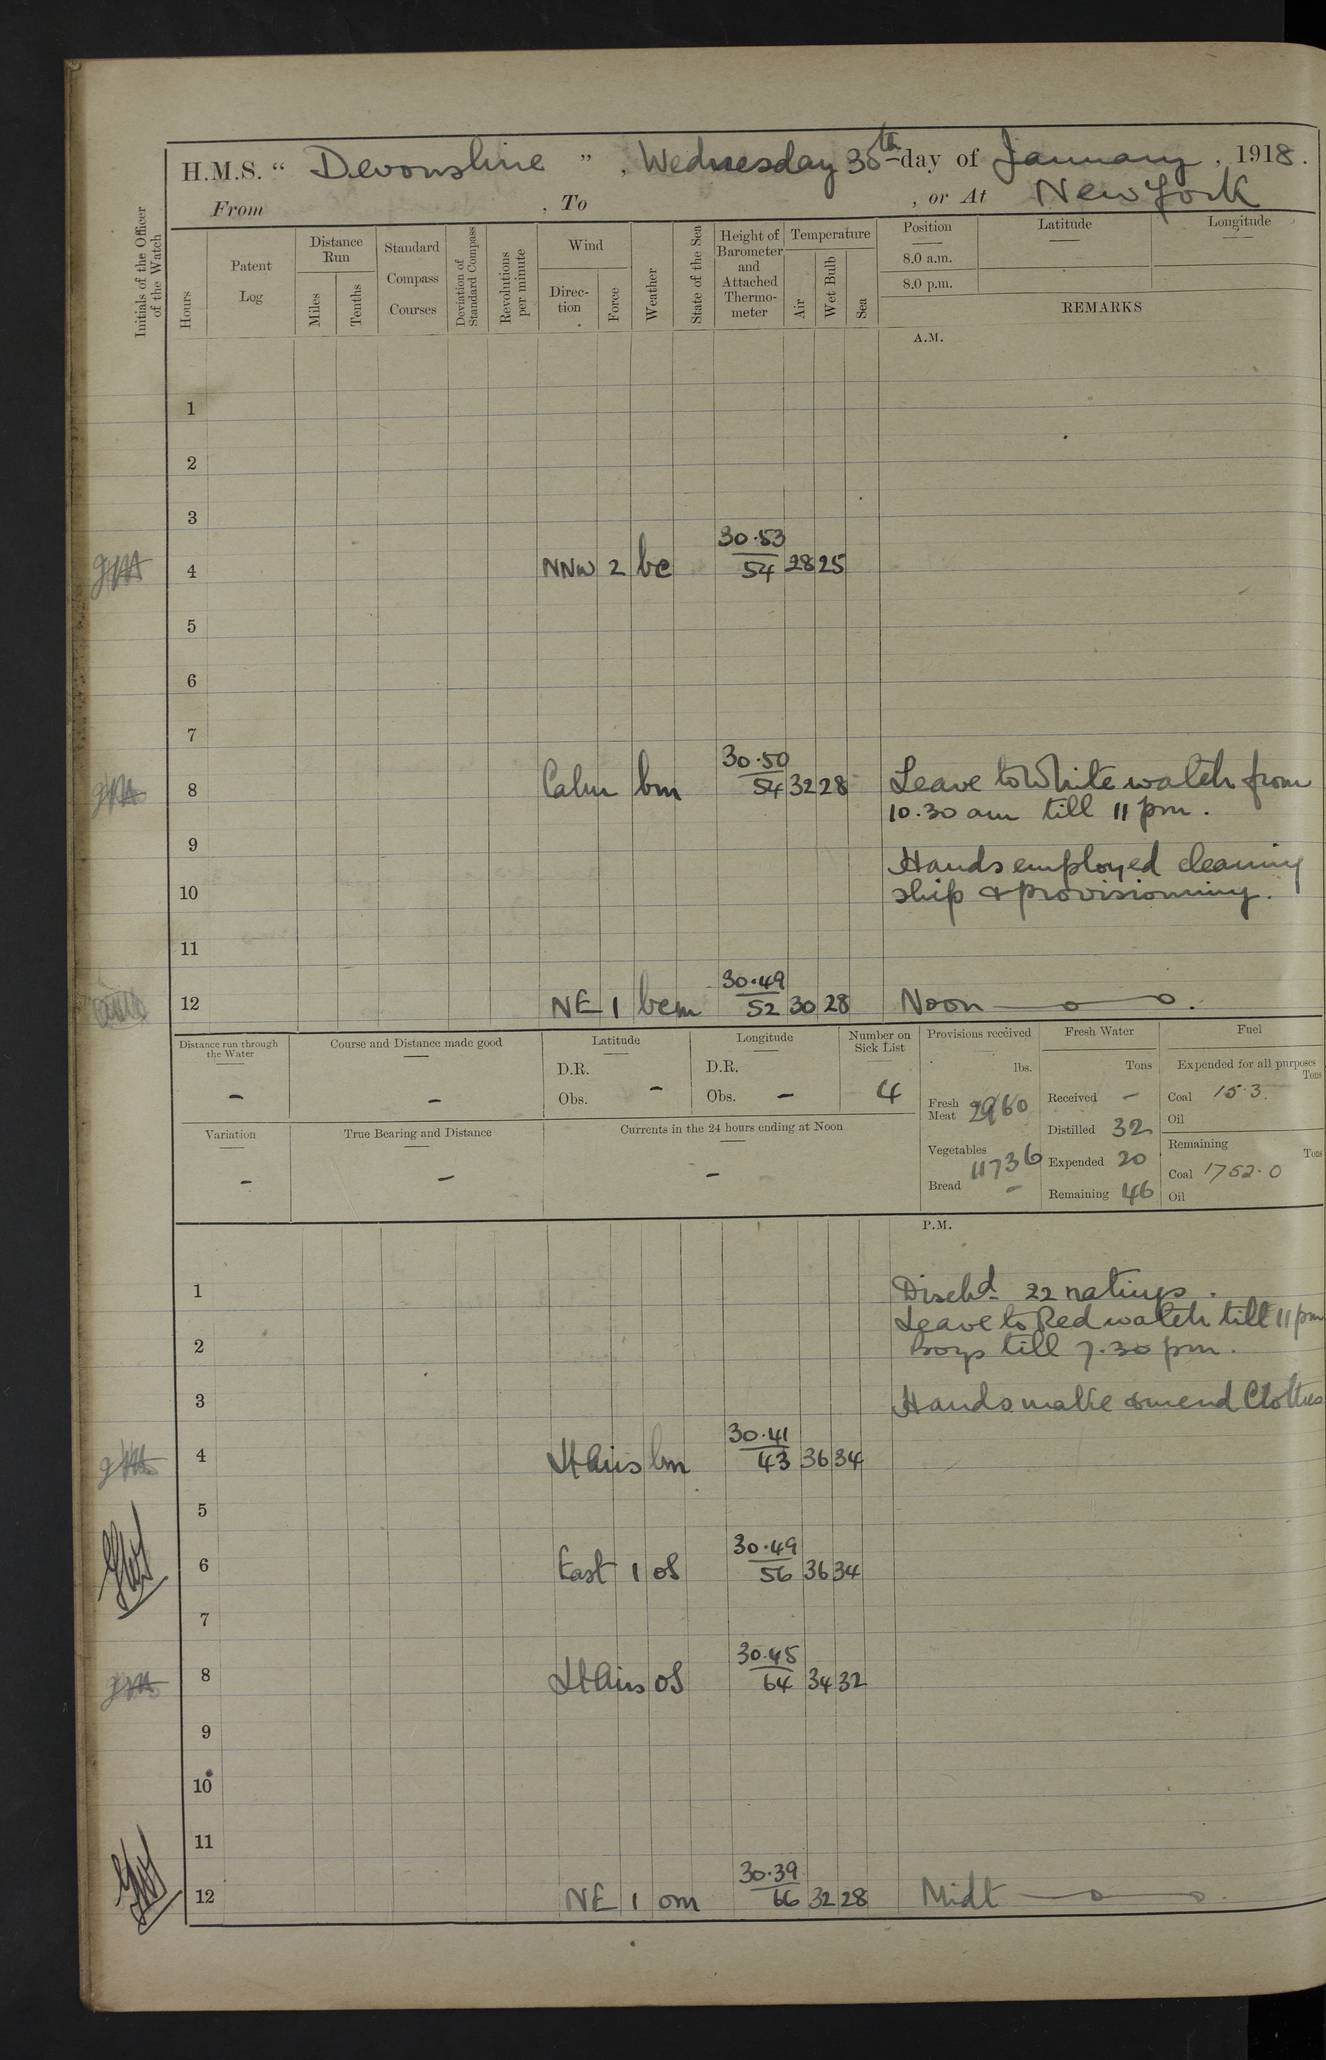 H.M.S. “ Devonshire ” , Wednesday 30th day of January , 1918.
From , To , or At New York
Initials of the Officer of the Watch
Hours
Patent Log
Distance Run
Miles
Tenths
Standard Compass Courses
Deviation of Standard Compass
Revolutions per minute
Wind
Direction
Force
Weather
State of the Sea
Height of Barometer and Attached Thermometer
Temperature
Air
Wet Bulb
Sea
Position Latitude Longitude
8.0 a.m.
8.0 p.m.
REMARKS
A.M.
1
2
3
30.53
4 NNW 2 bc 54 28 25
5
6
7
30.50
8 Calm bm 54 32 28 Leave to White watch from
10.30 am till 11 pm.
9
Hands employed cleaning
10 ship & provisioning.
11
30.49
12 NE 1 bcm 52 30 28 Noon
Distance run through the Water -
Course and Distance made good -
Latitude D.R. Obs. -
Longitude D.R. Obs. -
Number on Sick List 4
Variation -
True Bearing and Distance -
Currents in the 24 hours ending at Noon -
Provisions received lbs.
Fresh Meat
Vegetables 11736
Bread -
Fresh Water Tons
Received -
Distilled 32
Expended 20
Remaining 46
Fuel
Expended for all purposes Tons
Coal 153.
Oil
Remaining Tons
Coal 1752.0
Oil
P.M.
1 Disch'd 22 ratings.
Leave to Red watch till 11 pm
2 Boys till 7.30 pm.
3 Hands make & mend Clothes
30.41
4 Lt Airs bm 43 36 34
5
30.49
6 East 1 of 56 36 34
7
30.45
8 Lt Airs of 64 34 32
9
10
11
30.39
12 NE 1 om 66 32 28 Midt